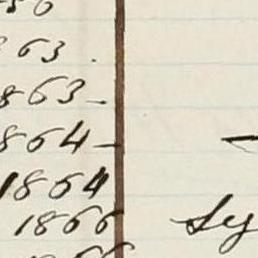 63.
863-
864-
1864
1866 Sy